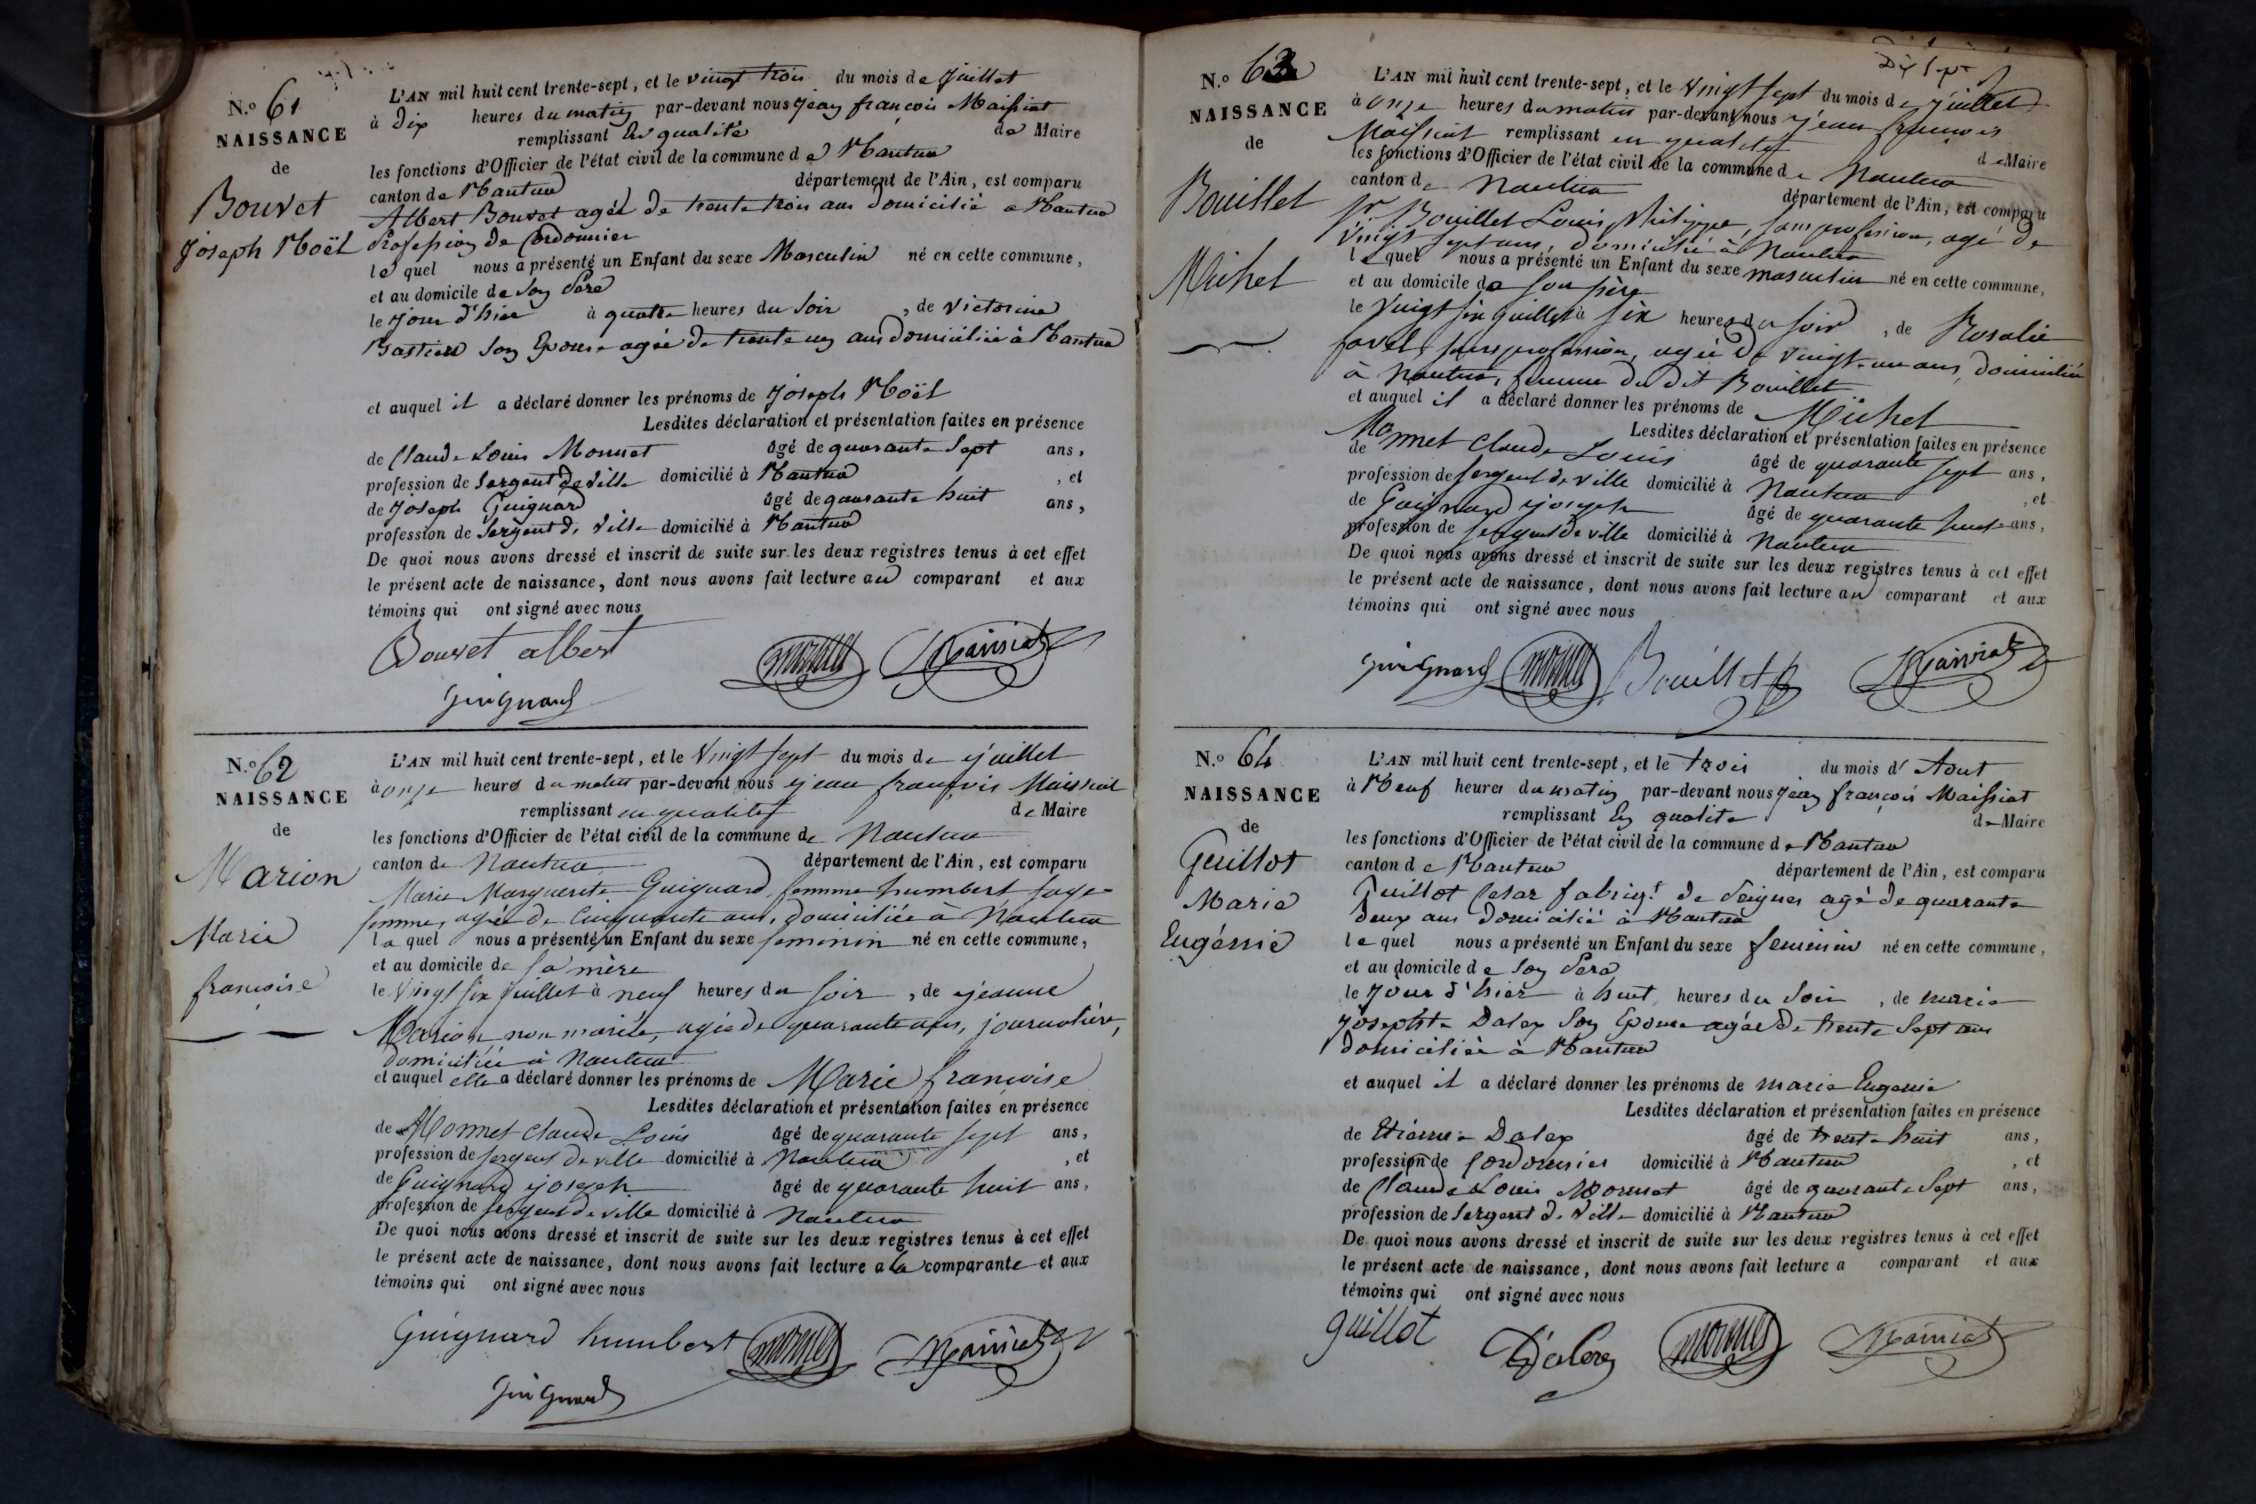 N.º 61
NAISSANCE
de
Bouvet
Joseph Noël
L'AN mil huit cent trente-sept, et le vingt trois du mois de Juillet
à dix heures du matin par-devant nous jean françois Maissiat
remplissant En qualité de Maire
les fonctions d'Officier de l'état civil de la commune de Nantua
canton de Nantua département de l'Ain, est comparu
Albert Bouvet agée de trente trois ans domicilié a Nantua
Profession de Cordonnier
le quel nous a présenté un Enfant du sexe Masculin né en cette commune,
et au domicile de Son Pere
le jour d'hier à quatre heures du Soir, de Victorine
Bastian Son Epouse agée de trente un ans domiciliée à Nantua
et auquel il a déclaré donner les prénoms de Joseph Noël
Lesdites déclaration et présentation faites en présence
de Claude Louis Monnet âgé de quarante Sept ans,
profession de Sergent de Ville domicilié à Nantua, et
de Joseph Guignard âgé de quarante huit ans,
profession de Sergent de Ville domicilié à Nantua
De quoi nous avons dressé et inscrit de suite sur les deux registres tenus à cet effet
le présent acte de naissance, dont nous avons fait lecture au comparant et aux
témoins qui ont signé avec nous
Bouvet albert monnet Maissiat
Guignard
N.º 62
NAISSANCE
de
Marion
Marie
françoise
L'AN mil huit cent trente-sept, et le Vingt sept du mois de juillet
à onze heures du matin par-devant nous jean françois Maissiat
remplissant en qualité de Maire
les fonctions d'Officier de l'état civil de la commune de Nantua
canton de Nantua département de l'Ain, est comparu
Marie Marguerite Guignard femme humbert sage
femme, agée de Cinquante ans, domiciliée à Nantua
la quel nous a présenté un Enfant du sexe feminin né en cette commune,
et au domicile de sa mère
le Vingt six juillet à neuf heures du soir, de jeanne
Marion non mariée, agée de quarante ans, journalière,
domiciliée à Nantua
et auquel elle a déclaré donner les prénoms de Marie françoise
Lesdites déclaration et présentation faites en présence
de Monnet claude Louis âgé de quarante sept ans,
profession de sergent de ville domicilié à Nantua, et
de Guignard joseph âgé de quarante huit ans,
profession de sergent de ville domicilié à Nantua
De quoi nous avons dressé et inscrit de suite sur les deux registres tenus à cet effet
le présent acte de naissance, dont nous avons fait lecture a la comparante et aux
témoins qui ont signé avec nous
Guignard humbert monnet Maissiat
Guignard
Dix sept
N.º 63
NAISSANCE
de
Bouillet
Michel
L'AN mil huit cent trente-sept, et le Vingt sept du mois de juillet
à onze heures du matin par-devant nous jean françois
Maissiat remplissant en qualité de Maire
les fonctions d'Officier de l'état civil de la commune de Nantua
canton de Nantua département de l'Ain, est comparu
Sr. Bouillet Louis Philippe, sans profession, agé de
Vingt sept ans, domicilié à Nantua
le quel nous a présenté un Enfant du sexe masculin né en cette commune,
et au domicile de son père
le Vingt six juillet à six heures du soir, de Rosalie
favel, sans profession, agée de vingt-un ans, domiciliée
à Nantua, femme du dit Bouillet
et auquel il a déclaré donner les prénoms de Michel
Lesdites déclaration et présentation faites en présence
de Monnet Claude Louis âgé de quarante sept ans,
profession de sergent de ville domicilié à Nantua, et
de Guignard joseph âgé de quarante huit ans,
profession de sergent de ville domicilié à Nantua
De quoi nous avons dressé et inscrit de suite sur les deux registres tenus à cet effet
le présent acte de naissance, dont nous avons fait lecture au comparant et aux
témoins qui ont signé avec nous
Guignard monnet Bouillet Maissiat
N.º 64
NAISSANCE
de
Guillot
Marie
Eugénie
L'AN mil huit cent trente-sept, et le trois du mois d' Aout
à Neuf heures du matin par-devant nous jean françois Maissiat
remplissant En qualité de Maire
les fonctions d'Officier de l'état civil de la commune de Nantua
canton de Nantua département de l'Ain, est comparu
Guillot Cesar fabriqt. de Peignes agé de quarante
deux ans domicilié à Nantua
le quel nous a présenté un Enfant du sexe feminin né en cette commune,
et au domicile de Son Pere
le jour d'hier à huit heures du Soir, de marie
Josephte Dalex Son Epouse agée de trente Sept ans
domiciliée à Nantua
et auquel il a déclaré donner les prénoms de marie Eugenie
Lesdites déclaration et présentation faites en présence
de Etienne Dalex âgé de trente huit ans,
profession de Cordonnier domicilié à Nantua, et
de Claude Louis Monnet âgé de quarante Sept ans,
profession de Sergent de Ville domicilié à Nantua
De quoi nous avons dressé et inscrit de suite sur les deux registres tenus à cet effet
le présent acte de naissance, dont nous avons fait lecture a comparant et aux
témoins qui ont signé avec nous
guillot Dalex monnet Maissiat